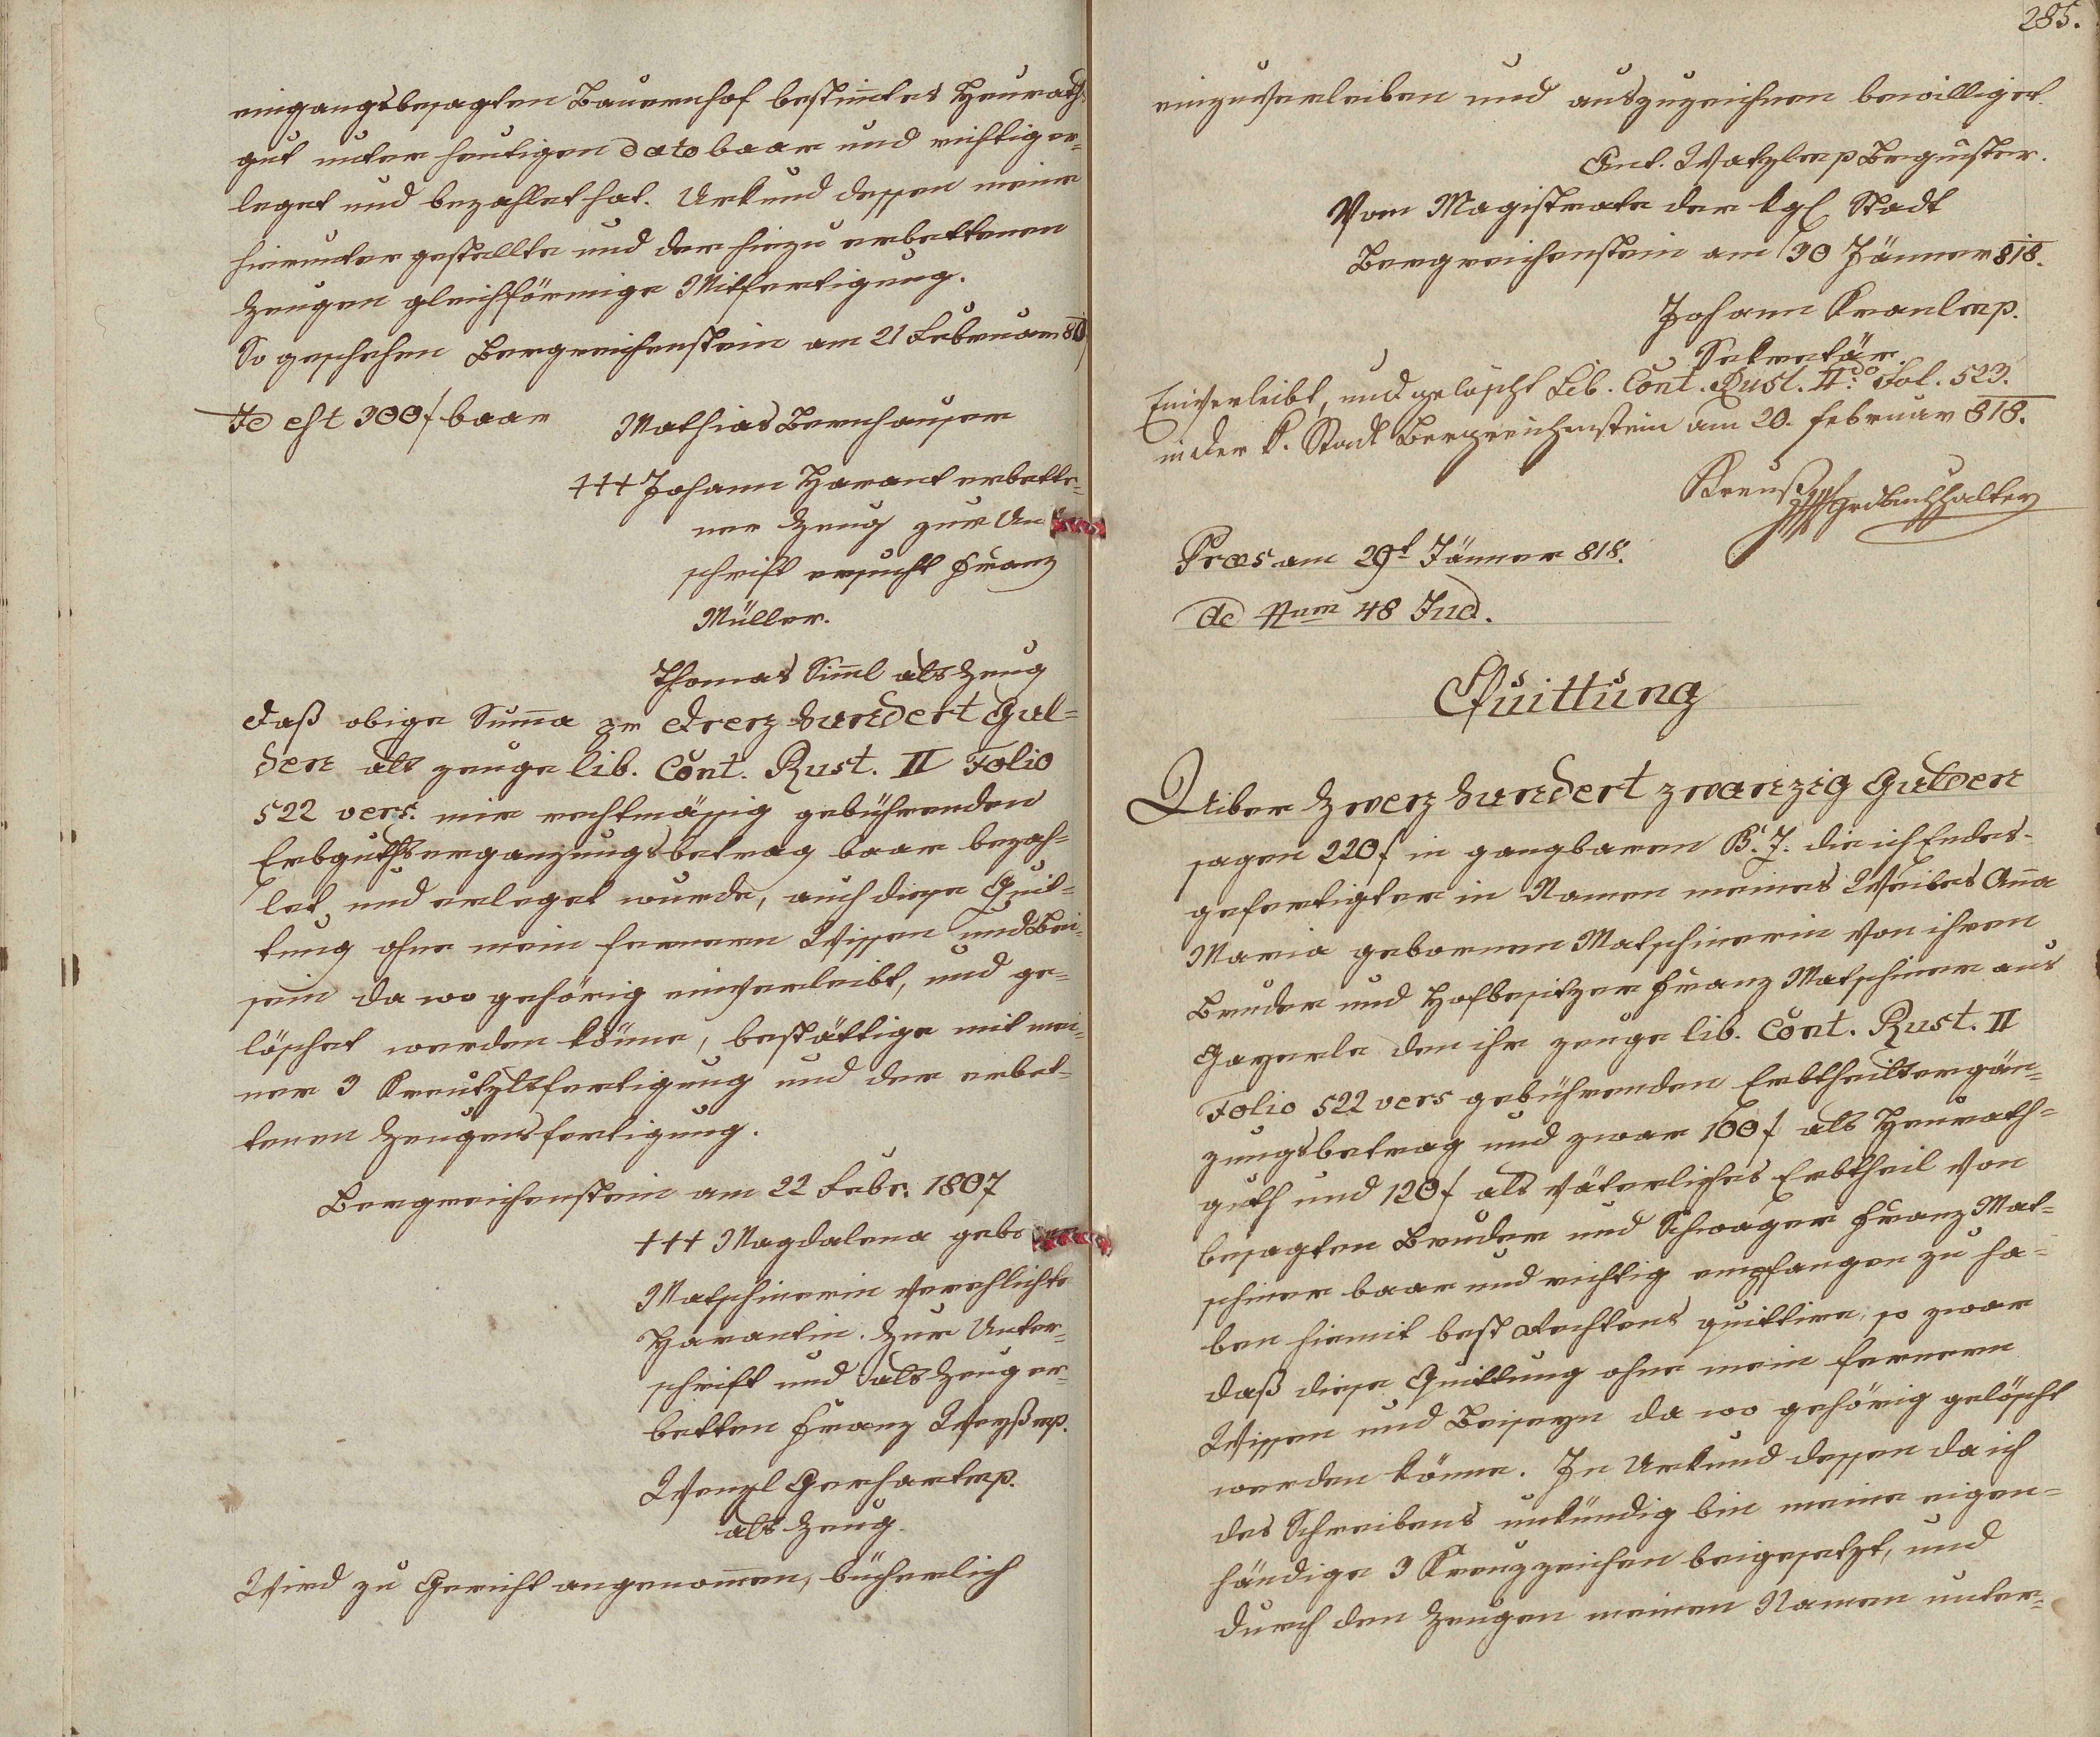 eingangsbesagten Bauernhof bestimtes Heurath-
gut unter heutigen dato baar und richtig er-
leget und bezahlet hat. Urkund dessen meine
hierunter gestellte und der hiezu erbettenen
Zeugen gleichförmige Mitfertigung.
So geschehen Bergreichenstein am 21 Februar
Id est 300 f baar Mathias Bernhauser
+++ Johann Harant erbette-
ner Zeug zur Un
schrift ersucht Franz
Müller.
Thomas Siml als Zeug
Daß obige Suma pr Dreyhundert Gul-
den als zeuge lib. Cont. Rust. II Folio
522 vers. mir rechtmässig gebührenden
Erbguthsergänzungsbetrag baar bezah-
let und erleget wurde, auch diese Quit-
tung ohne mein fernern Wissen und Bei-
sein da wo gehörig einverleibt, und ge-
löschet werden könne, bestättige mit mei-
ner 3 Kreutzlsfertigung und der erbet-
tenen Zeugensfertigung.
Bergreichenstein am 22 Febr. 1807
+++ Magdalena geb
Matschinerin verehlichte
Harantin. Zur Unter-
schrift und als Zeug er-
betten Franz Weyß mp.
Wenzl Gerhart mp.
als Zeug
Wird zu Gericht angenomen, bücherlich
285.
einzuverleiben und auszuzeichnen bewilliget.
Ant. Watzle mp Bgmster.
Vom Magistrate der kgl Stadt
Bergreichenstein am 30 Jänner 818.
Johann Kranl mp.
Sekretär
Einverleibt, und gelöscht Lib. Cont. Rust. II.do Fol. 523.
in der k. Stadt Bergreichenstein am 20. Februar 818.
Kreuß mp Grdbuchhalter
Præs am 29t Jänner 818.
ad Num 48 Jud.
Quittung
Uiber Zwey hundert zwanzig Gulden
sagen 220 f in gangbaren B. Z. die ich Endes-
gefertigter in Namen meines Weibes Ana
Maria gebornen Matschinerin von ihren
Bruder und Hofbesitzer Franz Matschiner aus
Gayerle den ihr zeuge lib. Cont. Rust. II
Folio 522 vers gebührenden Erbtheilsergän-
zungsbetrag und zwar 100 f als Heurath-
guth und 120 f als väterliches Erbtheil von
besagten Bruder und Schwager Franz Mat-
schiner baar und richtig empfangen zu ha-
ben hiemit best Rechtens quittire, so zwar
daß diese Quittung ohne mein fernern
Wissen und Beiseyn da wo gehörig gelöscht
werden könne. In Urkund dessen da ich
des Schreibens unkündig bin meine eigen-
händige 3 Kreuzzeichen beigesetzt, und
durch den Zeugen meinen Namen unter-